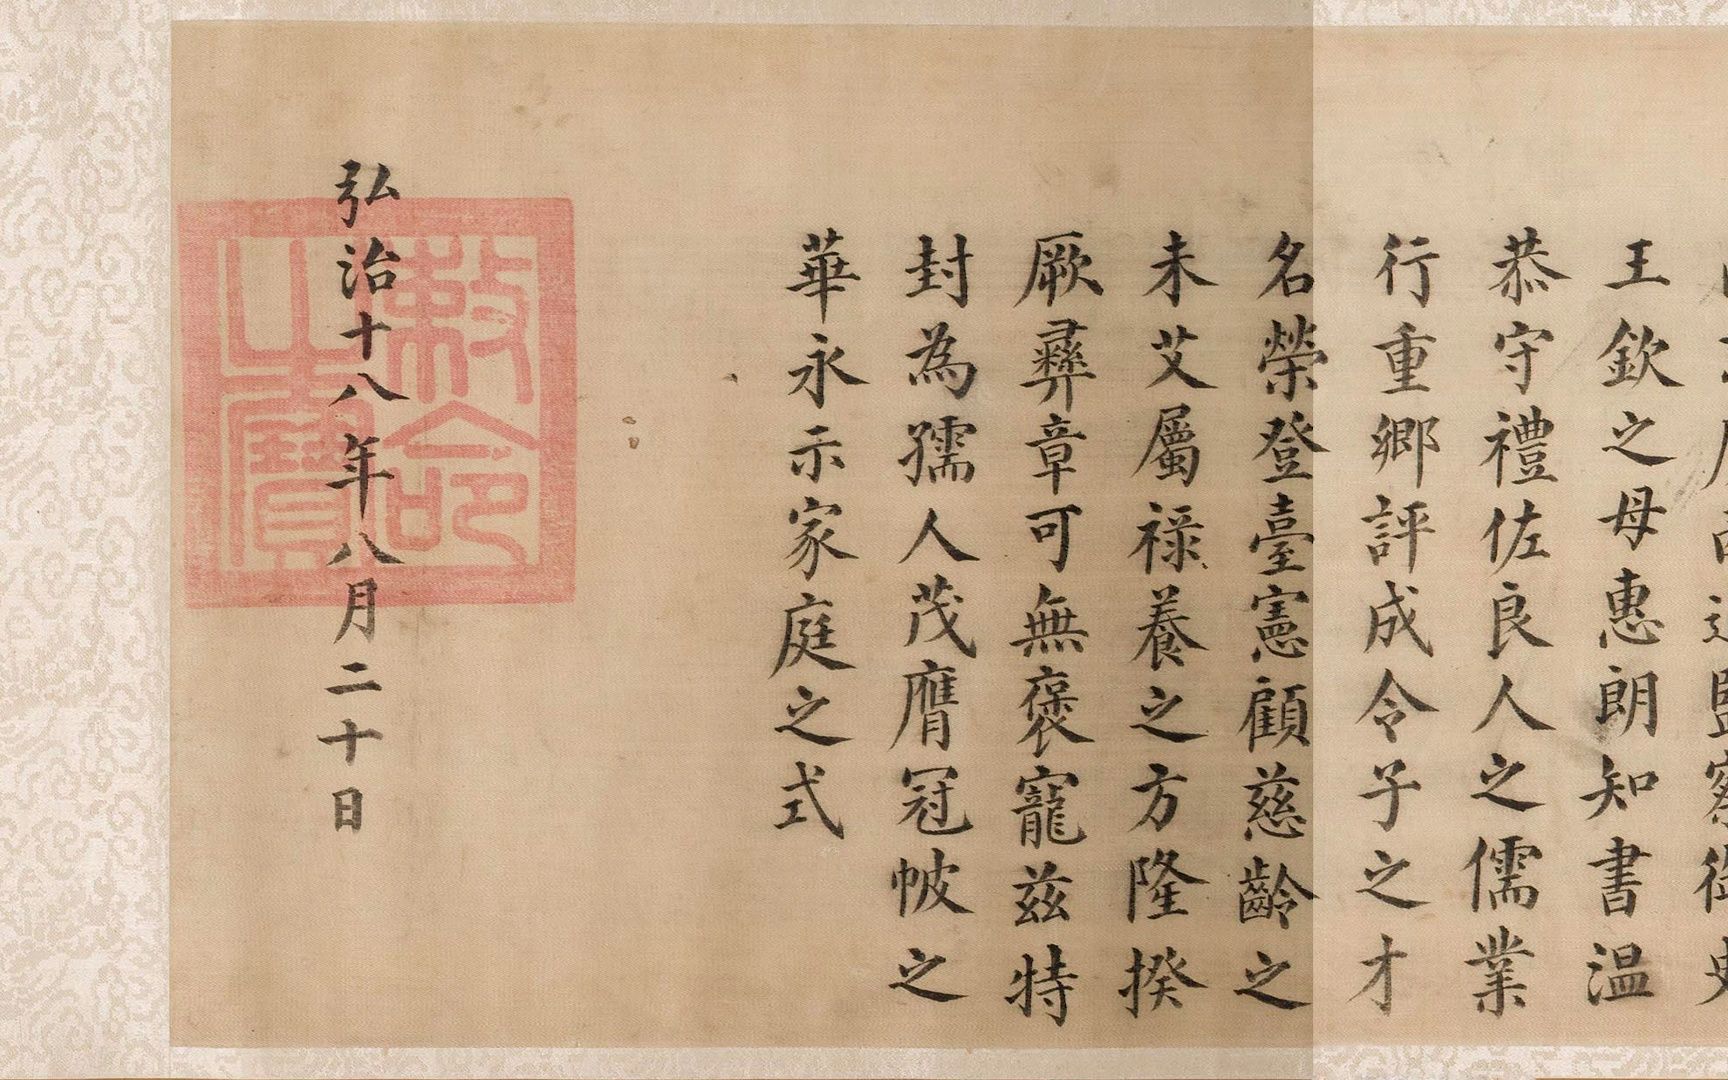 監察御史
王欽之母惠朗知書温
恭守禮佐良人之儒業
行重鄉評成令子之才
名榮登臺憲顧慈齡之
未艾屬禄養之方隆揆
厥彝章可無褒寵茲特
封為孺人茂膺冠帔之
華永示家庭之式
弘治十八年八月二十日
敕命之寶